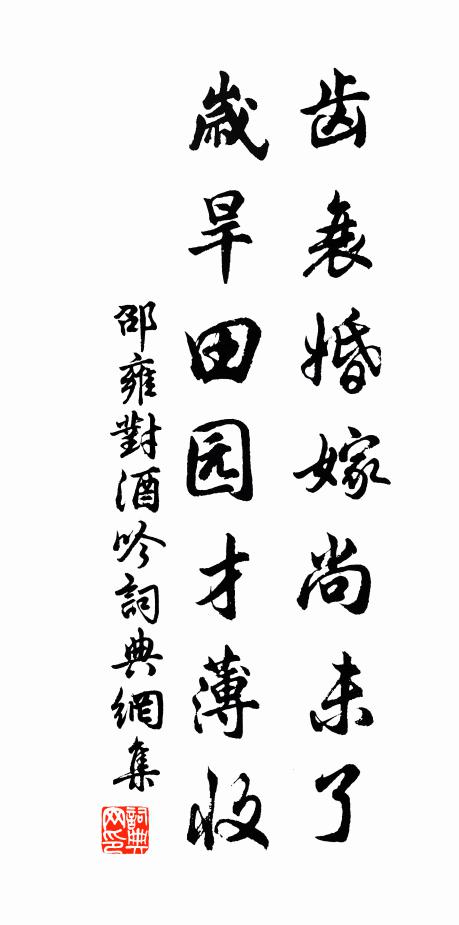 齿衰婚嫁尚未了
歲旱田园才薄收
邵雍對酒吟詞典網集
詞典网印